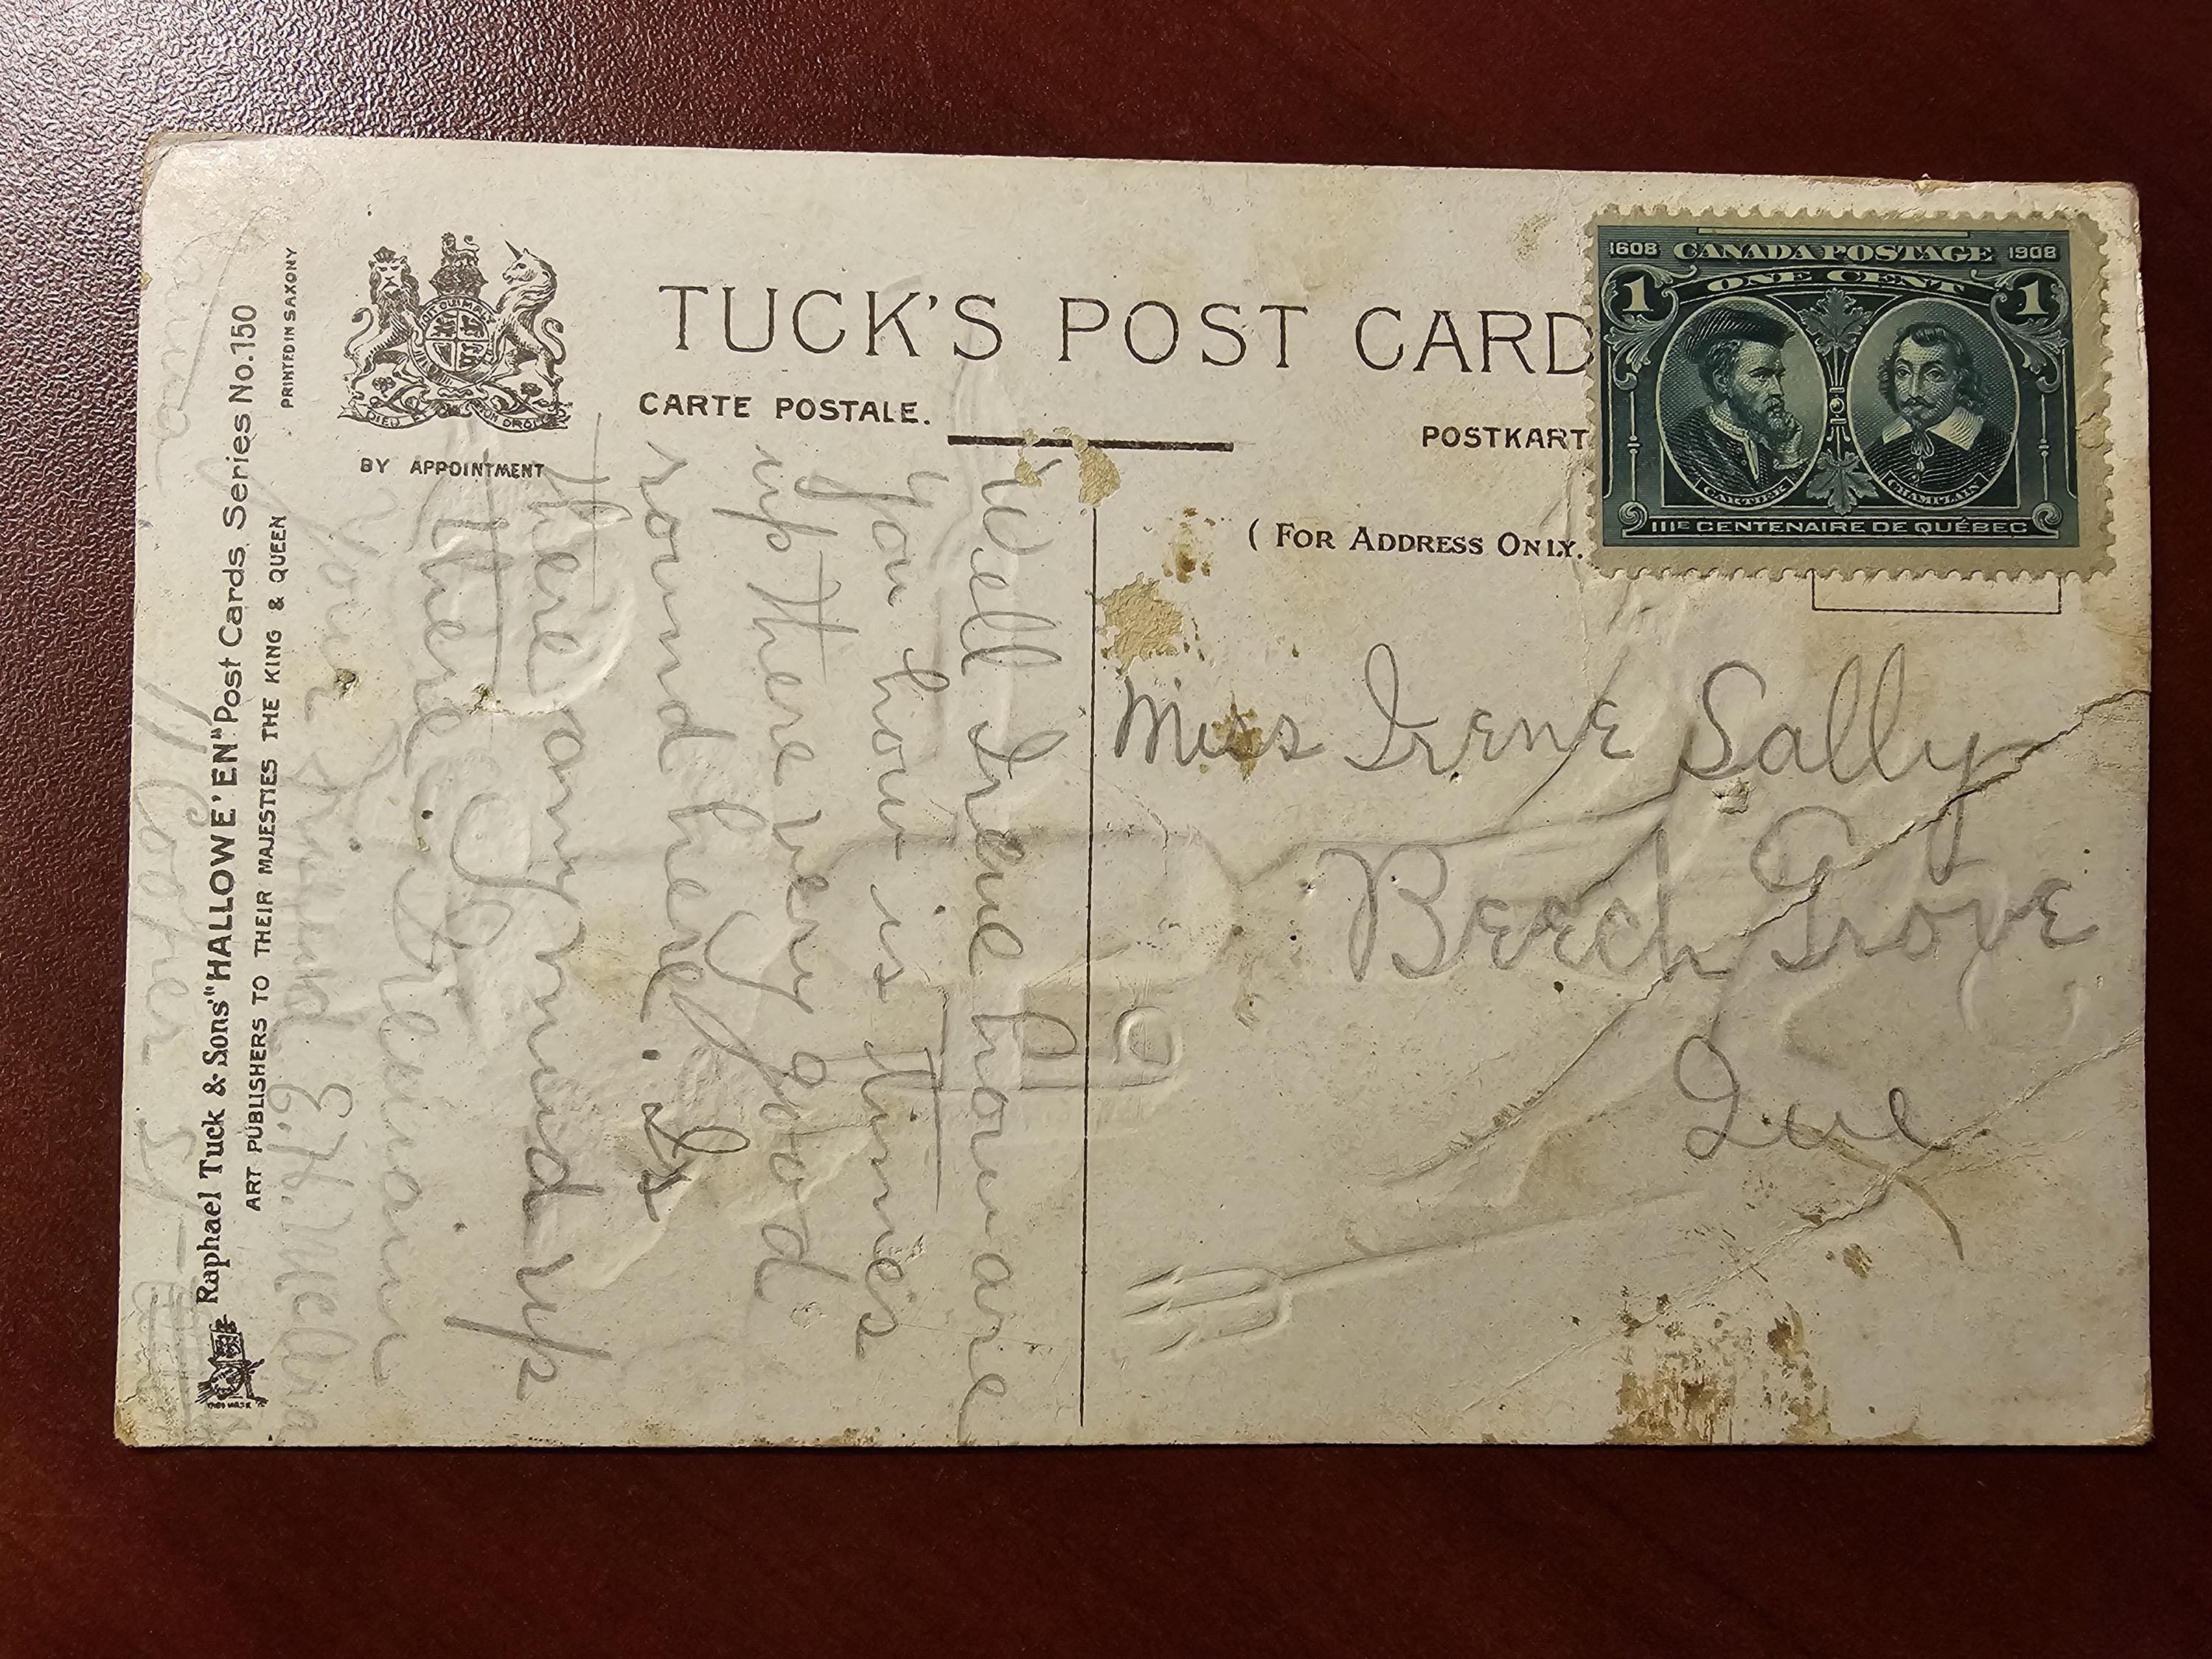 TUCK'S POST CARD
CARTE POSTALE.
POSTKART
BY APPOINTMENT
( FOR ADDRESS ONLY.
1608 CANADA POSTAGE 1908
ONE CENT
1 1
CARTIER CHAMPLAIN
IIIE CENTENAIRE DE QUÉBEC
Miss Irene Sally
Beech Grove
Que
Well Irene how are
you how is times
up there very good
round here. Is
there any mud up
there
Your Friend E.H.
11 Cooper St
Raphael Tuck & Sons' "HALLOWE'EN" Post Cards. Series No. 150
ART PUBLISHERS TO THEIR MAJESTIES THE KING & QUEEN
PRINTED IN SAXONY